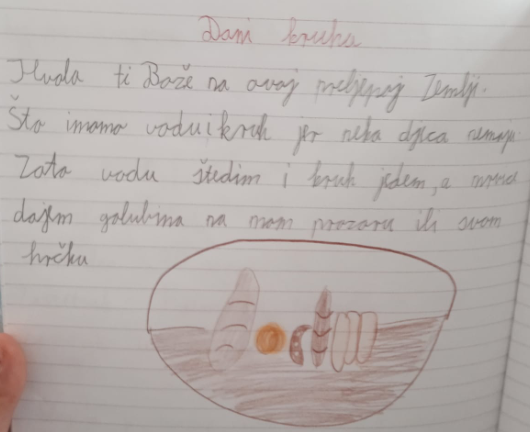 Dani kruha
Hvala ti Bože na ovoj prelijepoj Zemlji.
Što imamo vodu i kruh jer neka djeca nemaju
Zato vodu štedim i kruh jedem, a mrve
dajem golubima na mom prozoru ili svom
hrčku